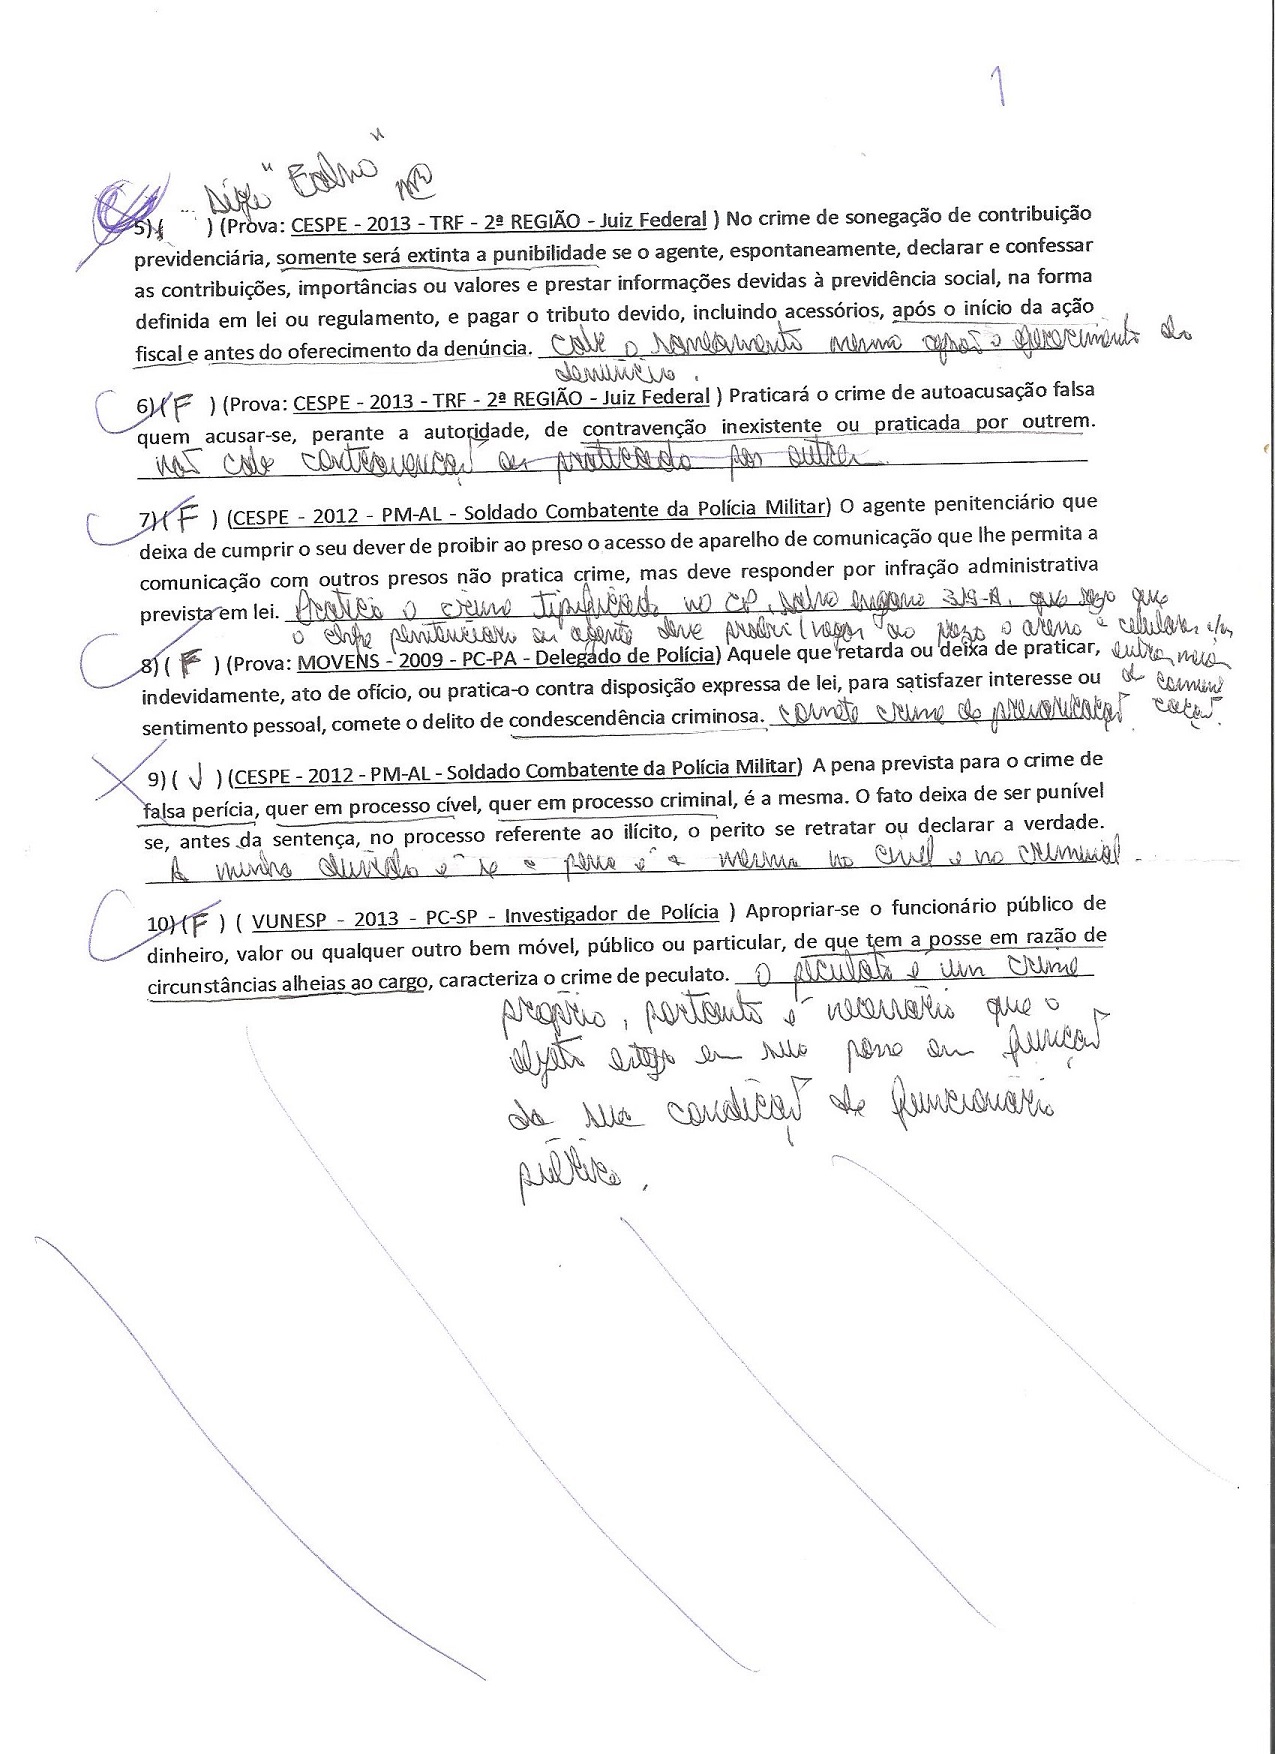 1
Digo "Falho"
5)( ) (Prova: CESPE - 2013 - TRF - 2ª REGIÃO - Juiz Federal ) No crime de sonegação de contribuição
previdenciária, somente será extinta a punibilidade se o agente, espontaneamente, declarar e confessar
as contribuições, importâncias ou valores e prestar informações devidas à previdência social, na forma
definida em lei ou regulamento, e pagar o tributo devido, incluindo acessórios, após o início da ação
fiscal e antes do oferecimento da denúncia. cabe o mesmo após o oferecimento da
denúncia.
6)(F ) (Prova: CESPE - 2013 - TRF - 2ª REGIÃO - Juiz Federal ) Praticará o crime de autoacusação falsa
quem acusar-se, perante a autoridade, de contravenção inexistente ou praticada por outrem.
não cabe contravenção ou praticado por outrem
7)(F ) (CESPE - 2012 - PM-AL - Soldado Combatente da Polícia Militar) O agente penitenciário que
deixa de cumprir o seu dever de proibir ao preso o acesso de aparelho de comunicação que lhe permita a
comunicação com outros presos não pratica crime, mas deve responder por infração administrativa
prevista em lei. Pratica o crime tipificado no CP, salvo engano 319-A, que
o penitenciário ou agente deve ao preso o acesso a celulares
8)( F ) (Prova: MOVENS - 2009 - PC-PA - Delegado de Polícia) Aquele que retarda ou deixa de praticar, outro meio
indevidamente, ato de ofício, ou pratica-o contra disposição expressa de lei, para satisfazer interesse ou de comuni
sentimento pessoal, comete o delito de condescendência criminosa. comete crime de prevaricação cação.
9)( V ) (CESPE - 2012 - PM-AL - Soldado Combatente da Polícia Militar) A pena prevista para o crime de
falsa perícia, quer em processo cível, quer em processo criminal, é a mesma. O fato deixa de ser punível
se, antes da sentença, no processo referente ao ilícito, o perito se retratar ou declarar a verdade.
A minha dúvida é se a pena é a mesma no civel e no criminal.
10)(F ) ( VUNESP - 2013 - PC-SP - Investigador de Polícia ) Apropriar-se o funcionário público de
dinheiro, valor ou qualquer outro bem móvel, público ou particular, de que tem a posse em razão de
circunstâncias alheias ao cargo, caracteriza o crime de peculato. O peculato é um crime
próprio, portanto é necessário que o
objeto esteja em sua posse em função
da sua condição de funcionário
público.